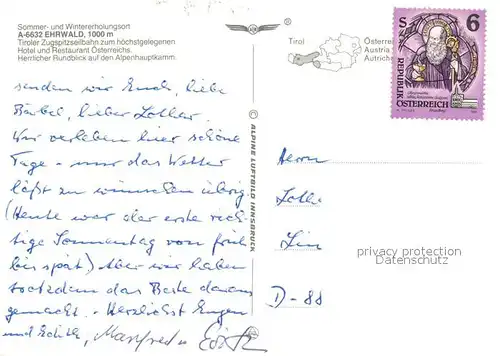 Sommer- und Wintererholungsort
A-6632 EHRWALD, 1000 m
Tiroler Zugspitzseilbahn zum höchstgelegenen
Hotel und Restaurant Österreichs.
Herrlicher Rundblick auf den Alpenhauptkamm.
senden wir Euch, liebe
Bärbel, lieber Lothar.
Wir verleben hier schöne
Tage - nur das Wetter
läßt zu wünschen übrig
(Heute war der erste rich-
tige Sonnentag von früh
bis spät) Aber wir haben
trotzdem das Beste daraus
gemacht. Herzlichst Eugen
und Edith, Manfred u. Edith
© ALPINE LUFTBILD INNSBRUCK
®
Tirol
Österreich
Austria
Autriche
S 6
REPUBLIK
ÖSTERREICH
Herrn
Lotha
Lin
D-88
privacy protection
Datenschutz